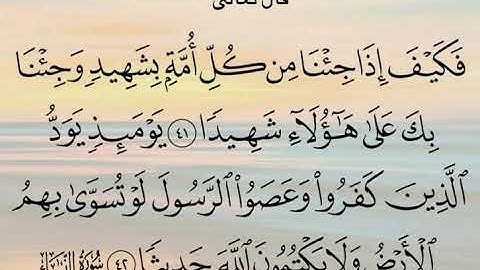 قال تعالى
فَكَيْفَ إِذَا جِئْنَا مِن كُلِّ أُمَّةٍۭ بِشَهِيدٍ وَجِئْنَا
بِكَ عَلَىٰ هَـٰٓؤُلَآءِ شَهِيدًا ٤١ يَوْمَئِذٍ يَوَدُّ
ٱلَّذِينَ كَفَرُوا۟ وَعَصَوُا۟ ٱلرَّسُولَ لَوْ تُسَوَّىٰ بِهِمُ
ٱلْأَرْضُ وَلَا يَكْتُمُونَ ٱللَّهَ حَدِيثًا ٤٢ سُورَةُ النِّسَاءِ